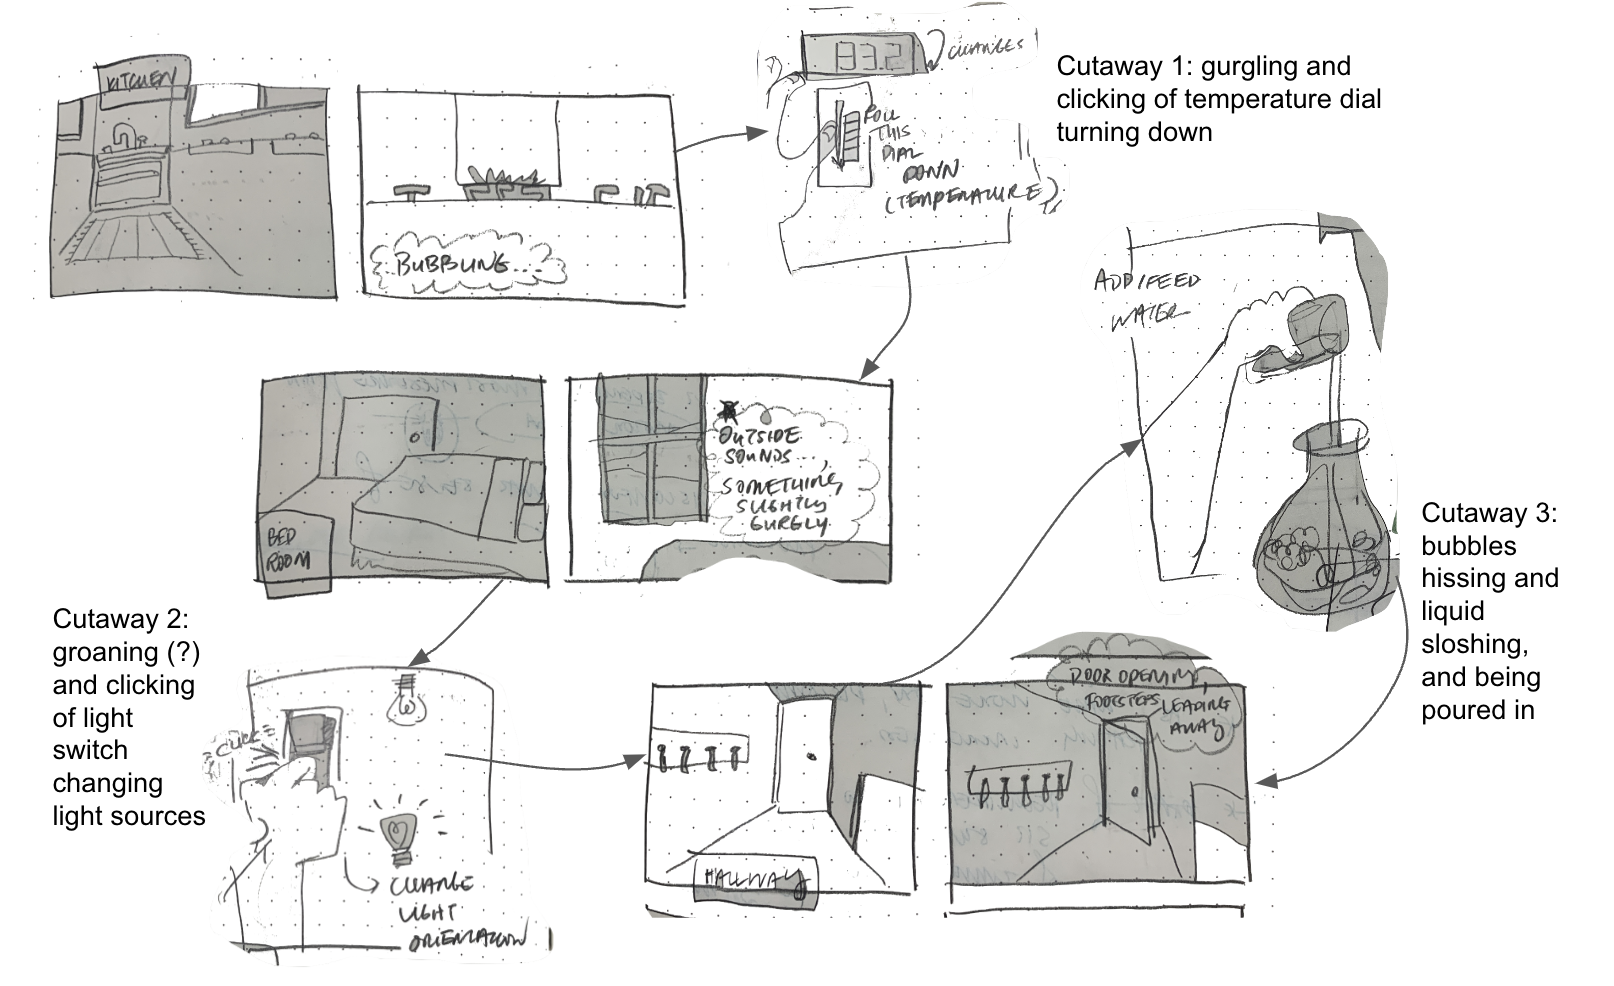 KITCHEN
BUBBLING...
83.2
CHANGES
PULL
THIS
DIAL
DOWN
(TEMPERATURE)
Cutaway 1: gurgling and
clicking of temperature dial
turning down
ADD/FEED
WATER
BED
ROOM
OUTSIDE
SOUNDS...,
SOMETHING
SLIGHTLY
GURGLY.
Cutaway 3:
bubbles
hissing and
liquid
sloshing,
and being
poured in
Cutaway 2:
groaning (?)
and clicking
of light
switch
changing
light sources
CLICK
CHANGE
LIGHT
ORIENTATION
HALLWAY
DOOR OPENING,
FOOTSTEPS LEADING
AWAY